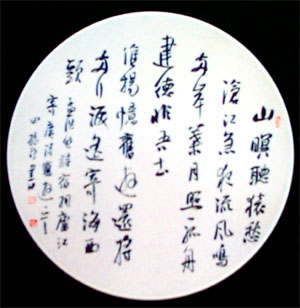 山暝聽猿愁
滄江急夜流風鳴
兩岸葉月照一孤舟
建德非吾土
維揚憶舊遊還將
兩行淚遙寄海西
頭
孟浩然詩宿桐廬江
寄廣陵舊遊